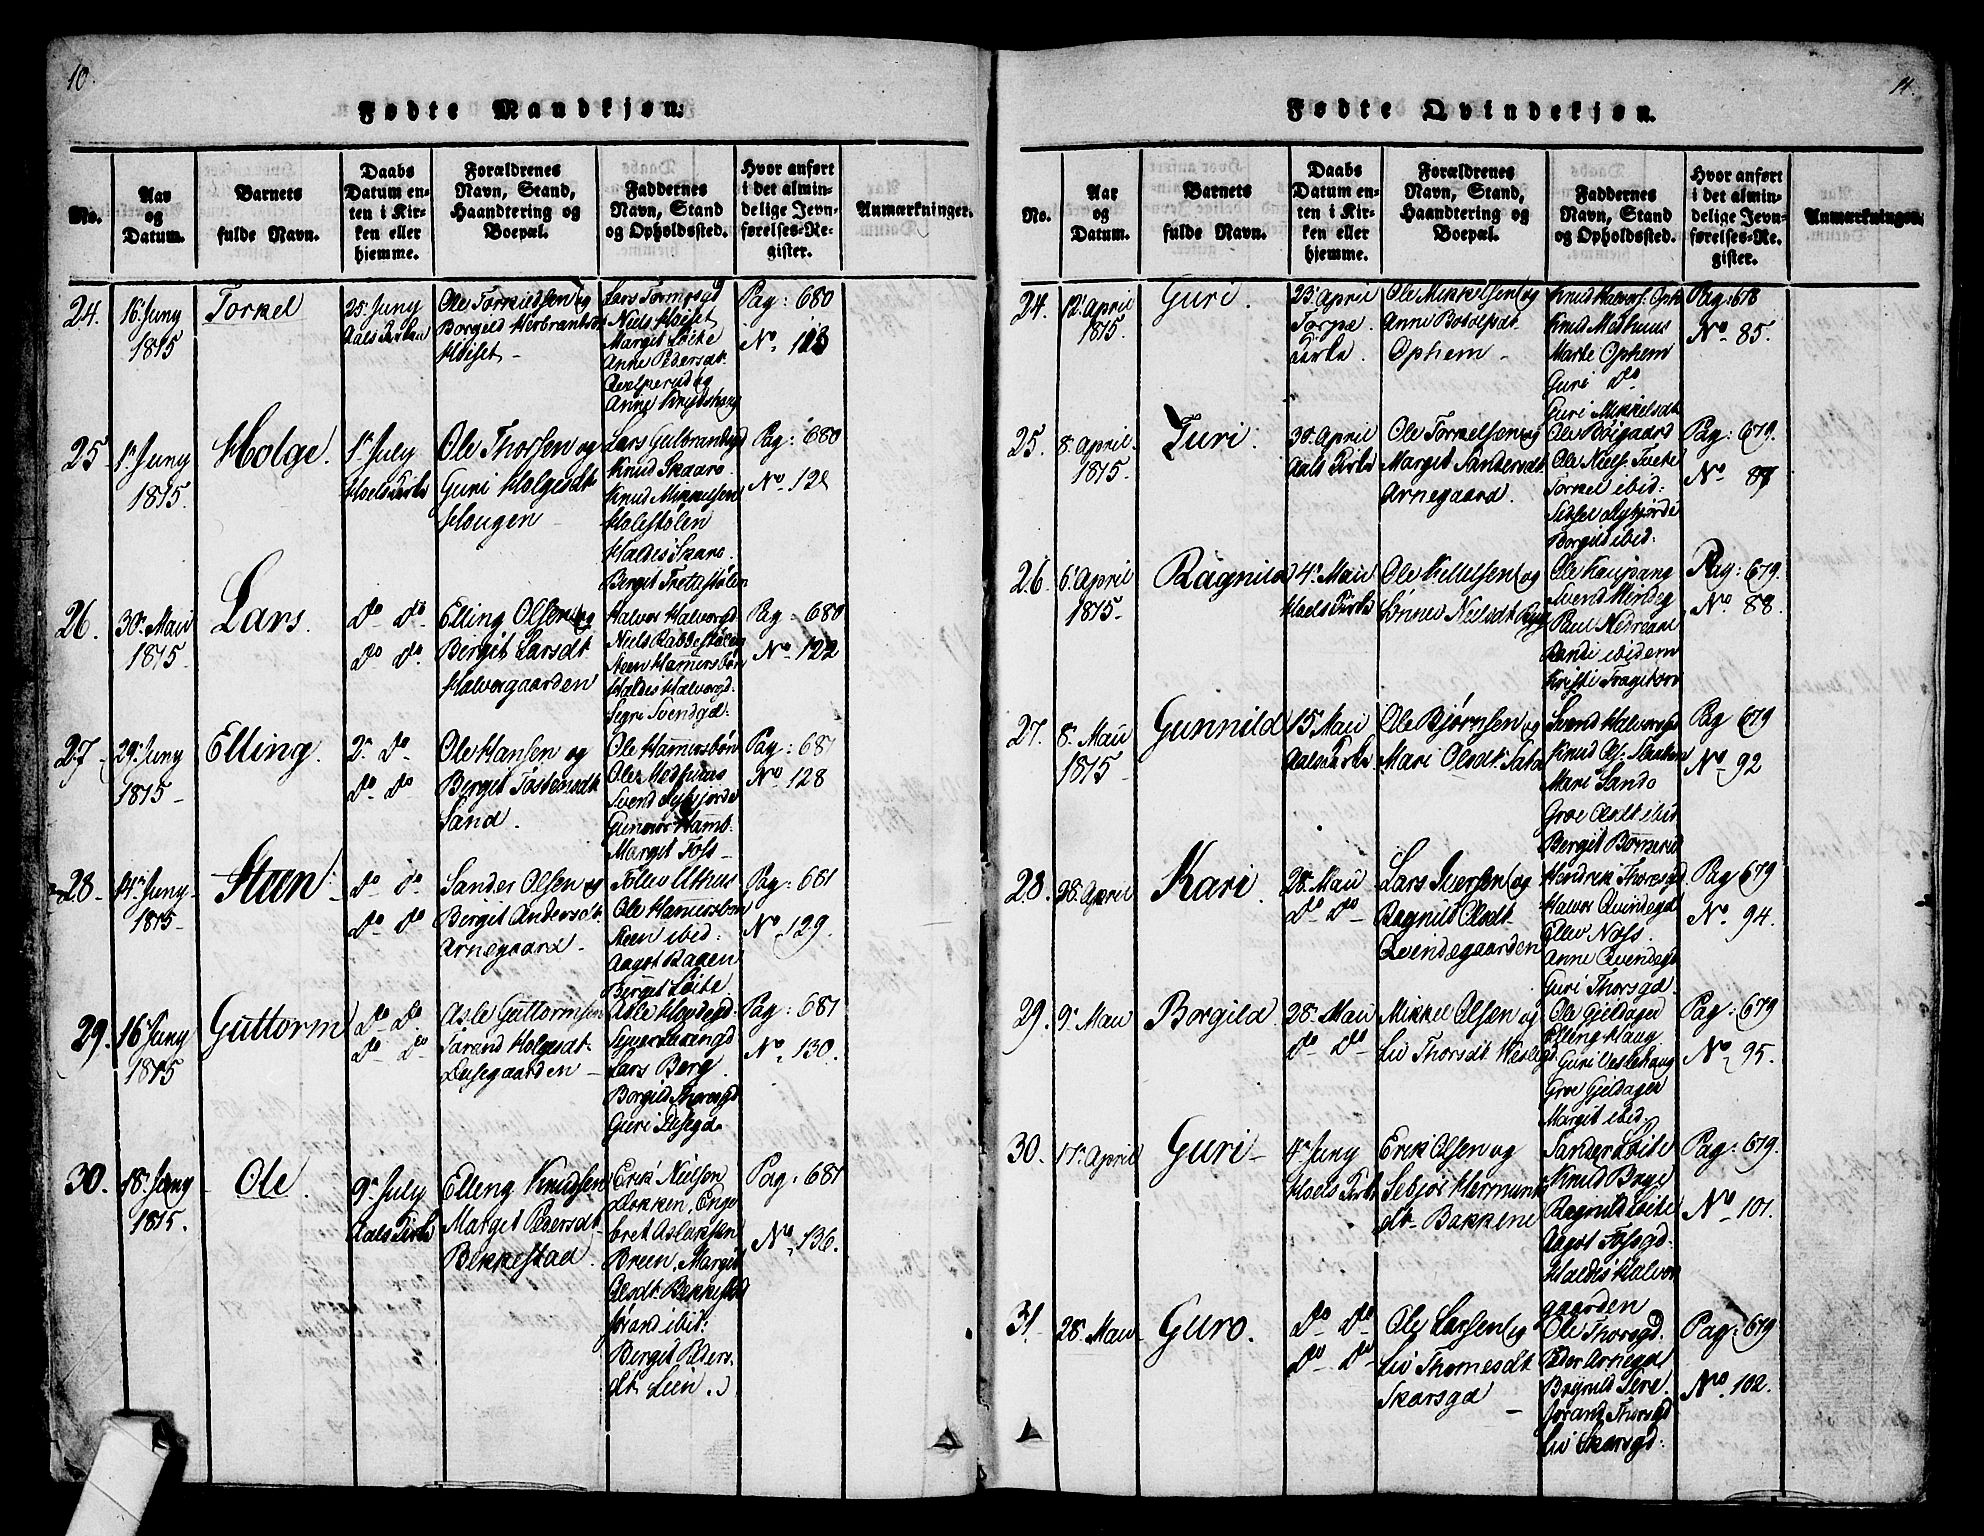 10.
Fødte Mandkjøn.
No.
Aar
og
Datum.
Barnets
fulde Navn.
Daabs
Datum en-
ten i Kir-
ken eller
hjemme.
Forældrenes
Navn, Stand,
Haandtering og
Boepæl.
Faddernes
Navn, Stand
og Opholdssted.
Hvor anført
i det almin-
delige Jevn-
førelses-Re-
gister.
Anmærkninger.
24.
16 Juny
1815
Torkel
25 Juny
Aals Kirke
Ole Torkildsen og
Borgild Herbrandsdt
Høiset
Niels Høiset
Margit Løite
Anne Pedersdt
Anne
Pag: 680
No. 113
25.
1 Juny
1815.
Holge.
1 July
Hoels Kirke
Ole Thorsen og
Guri Holgesdt
Hougen
Lars Gulbrandsgd
Knud Skaaro.
Knud Mikkelsen
Holestølen
Haldis Skaro.
Bergit
Pag: 680
No. 121
26.
30. Maii
1815.
Lars.
do do
do do
Elling Olsen og
Bergit Larsdt
Halvorgaarden
Halvor Halvorgd
Niels
Steen Hamersbøn
Haldis Halvorgd:
Segri Svendgd:
Pag: 680
No. 122
27
29. Juny
1815
Elling.
2. do
do do
Ole Hansen og
Bergit Tostensdt
Sand.
Ole Hamersbøn
Ole Medhuus
Svend Nykjorde
Gunnor Hamb.
Margit Foss
Pag: 681
No 128
28
14. Juny
1815
Steen
do do
do do
Sander Olsen og
Bergit Andersdt
Arnegaard
Tollev Uthus
Ole Hamersbøn
Steen ibid:
Aagot Bagen
Bergit Løite.
Pag: 681
No. 129.
29.
16 Juny
1815
Guttorm
do do
do do
Asle Guttormsen
Jørand Holgesdt
Dusegaarden
Asle Hovdegd:
Lars Berg.
Borgild Thorsgd
Guri Dusegd.
Pag: 681
No. 130.
30.
18. Juny
1815.
Ole
9. July
Aals Kirke
Elleng Knudsen
Margit Pedersdt
Bekkestad
Erik Nielsen
Løkken, Enge
bret Aslaksen
Breen, Margit
Olsdt Bekkestad
Jørand ibid:
Bergit Peders
dt Leen.
Pag: 681
No. 136.
11.
Fødte Qvindekjøn.
No.
Aar
og
Datum.
Barnets
fulde Navn.
Daabs
Datum en-
ten i Kir-
ken eller
hjemme.
Forældrenes
Navn, Stand,
Haandtering og
Boepæl.
Faddernes
Navn, Stand
og Opholdssted.
Hvor anført
i det almin-
delige Jevn-
førelses-Re-
gister.
Anmærkninger.
24.
12 April
1815.
Guri.
23. April
Torpe
Kirke.
Ole Mikkelsen og
Anne Botolfsdt
Ophem
Knud Halvors. Oph
Knud Medhuus
Marte Ophem
Guri do
Guri Mikkelsdt
Pag: 678
No 85.
25.
8. April
1815.
Turi.
30. April
Aals Kirke
Ole Torkelsen og
Margit Sandersdt
Arnegaard.
Ole Bøigaard
Ole Niels. Tveite
Torkel ibid:
Sidsel Nykjorde
Borgild ibid:
Pag: 679.
No 87
26
6. April
1815.
Ragnild
4. Maii
Hoels Kirke
Ole Killelsen og
Sønnev Nielsdt
Ole Kaupang
Svend Windeg
Paul Nedreaal
ibidem
Kristi
Pag: 679.
No. 88.
27.
8. Maii
1815.
Gunnild
15 Maii
Aals Kirke
Ole Bjørnsen og
Mari Olsdt
Svend Halvorgd
Knud Ols.
Mari Sando
Groe Olsdt ibid
Bergit
Pag 679
No 92
28.
28. April
Kari.
28. Maii
do do
Lars Iversen og
Ragnild Olsdt
Qvindegaarden
Hendrik Thoresgd
Halvor Qvindegd
Ellev Noss.
Anne Qvindegd
Guri Thorsgd.
Pag 679
No. 94.
29.
9. Maii
Borgild
28. Maii
do do
Mikkel Olsen og
Liv Thorsdt
Ole Gjeldager
Elling Haug
Guri Vestlehaug
Groe Gjeldager
Margit ibid.
Pag: 679
No 95.
30.
17. April
Guri
4. Juny
Hoels Kirke
Erik Olsen og
Sebjør Hermund
dt Bakkene
Sander Løite
Knud Brye
Ragnild Løite
Aagot Fossgd.
Haldis Halvor
gaarden
Pag: 679.
No 101.
31
28. Maii
Guro.
do do
do do
Ole Larsen og
Liv Thomesdt
Skarsgd
Ole Thorsgd.
Peder Arnegd
Jørand Thorsgd
Liv Skarsgd:
Pag: 679
No. 102.